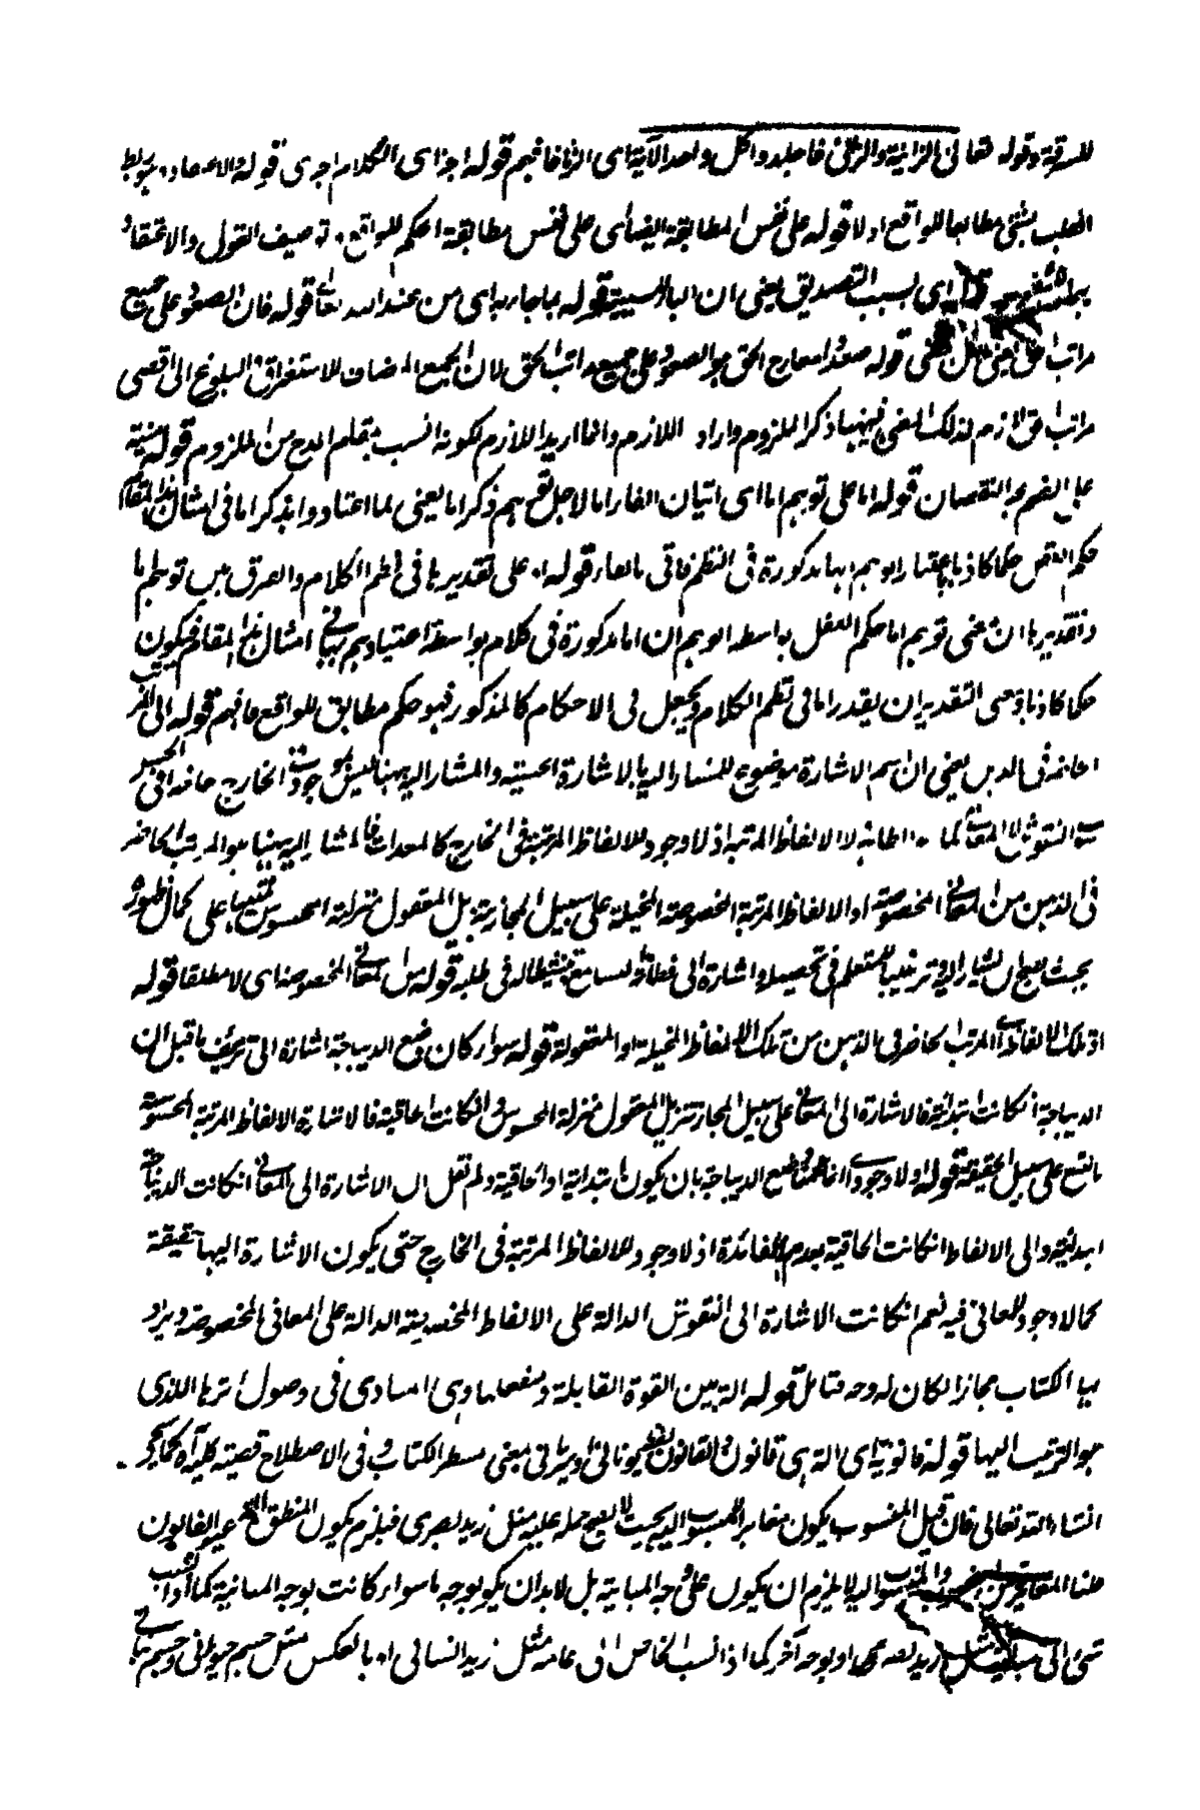 للسرقة وقوله تعالى الزانية والزاني فاجلدوا كل واحد الآية اى الزنا فافهم قوله اجزاى الكلام جرى قوله الاعتقاد يربط
القلب بشئ مطابقا للواقع اولا قوله على نفس المطابقة ايضا اى على نفس مطابقة الحكم للواقع توصيف القول والاعتقاد
قوله اى بسبب التصديق يعنى ان الباء للسببية قوله بما جاء به اى من عند الله تعالى قوله فان الصعود على جميع
مراتب الحق يعنى قوله صعدوا معارج الحق هو الصعود على جميع مراتب الحق لان الجمع المضاف للاستغراق البلوغ الى اقصى
مراتب الحق لازم لذلك المعنى فههنا ذكر الملزوم واراد اللازم وانما اريد اللازم لكونه انسب بمقام المدح من الملزوم قوله
قوله اما على توهم اما اى اتيان الفاء اما لاجل توهم ذكر اما يعنى لما اعتادوا بذكر اما فى امثال هذا المقام
حكم الوهم حكما كاذبا باعتبار الوهم انها مذكورة فى النظم فاتى بالفاء قوله او على تقديرها فى نظم الكلام والفرق بين توهم اما
وتقديرها ان معنى توهم اما حكم العقل بواسطة الوهم ان اما مذكورة فى كلام بواسطة اعتيادهم بها فى امثال هذا المقام فيكون
حكما كاذبا ومعنى التقدير ان يقدر اما فى نظم الكلام ويجعل فى الاحكام كالمذكور فهو حكم مطابق للواقع فافهم قوله الى المرتب
الحاضر فى الذهن يعنى ان اسم الاشارة موضوع للمشار اليه بالاشارة الحسية والمشار اليه ههنا ليس بموجود فى الخارج
لا الالفاظ المرتبة اذ لا وجود للالفاظ المرتبة فى الخارج فالمشار اليه ههنا هو المرتب الحاضر
فى الذهن من المعانى المخصوصة او الالفاظ المرتبة المخصوصة المخيلة على سبيل المجاز بتنزيل المعقول منزلة المحسوس تنبيها على كمال ظهوره
بحيث يصلح ان يشار اليه وترغيبا للمتعلم فى تحصيله واشارة الى فطانة السامع وتنشيطا له فى طلبه قوله من المعانى المخصوصة اى لا مطلقا قوله
او تلك الالفاظ اى المرتب الحاضر فى الذهن من تلك الالفاظ المخيلة او المعقولة قوله سواء كان وضع الديباجة اشارة الى تزييف ما قيل ان
الديباجة ان كانت ابتدائية فالاشارة الى المعانى على سبيل المجاز تنزيل المعقول منزلة المحسوس وان كانت الحاقية فالاشارة الى الالفاظ المرتبة المحسوسة
على سبيل الحقيقة قوله اذ لا وجود اى انما عممنا وضع الديباجة بان يكون ابتدائية او الحاقية ولم نقل ان الاشارة الى المعانى ان كانت الديباجة
ابتدائية والى الالفاظ ان كانت الحاقية لعدم الفائدة اذ لا وجود للالفاظ المرتبة فى الخارج حتى يكون الاشارة اليها حقيقة
كما لا وجود للمعانى فيه نعم ان كانت الاشارة الى النقوش الدالة على الالفاظ المخصوصة الدالة على المعانى المخصوصة ويراد
بها الكتاب مجازا لكان له وجه فتأمل قوله آلة بين القوة القابلة فى وصول اثرها اللذى
هو الترتيب اليها قوله قانونية اى آلة هى قانون والقانون لفظ يونانى او سريانى بمعنى مسطر الكتاب وفى الاصطلاح قضية كلية آه كما يجئ
انشاء الله تعالى فان قيل المنسوب يكون مغايرا للمنسوب اليه بحيث لا يصح حمله عليه مثل زيد بصرى فيلزم يكون المنطق غير القانون
قلنا المغايرة بين المنسوب والمنسوب اليه لا يلزم ان يكون على وجه المباينة بل لا بد ان يكون بوجه ما سواء كانت بوجه المباينة كما اذا نسب
شئ الى مباينه مثل زيد بصرى او بوجه آخر كما اذا نسب الخاص الى عامه مثل زيد انسانى او بالعكس مثل جسم حيوانى وجسم نامى